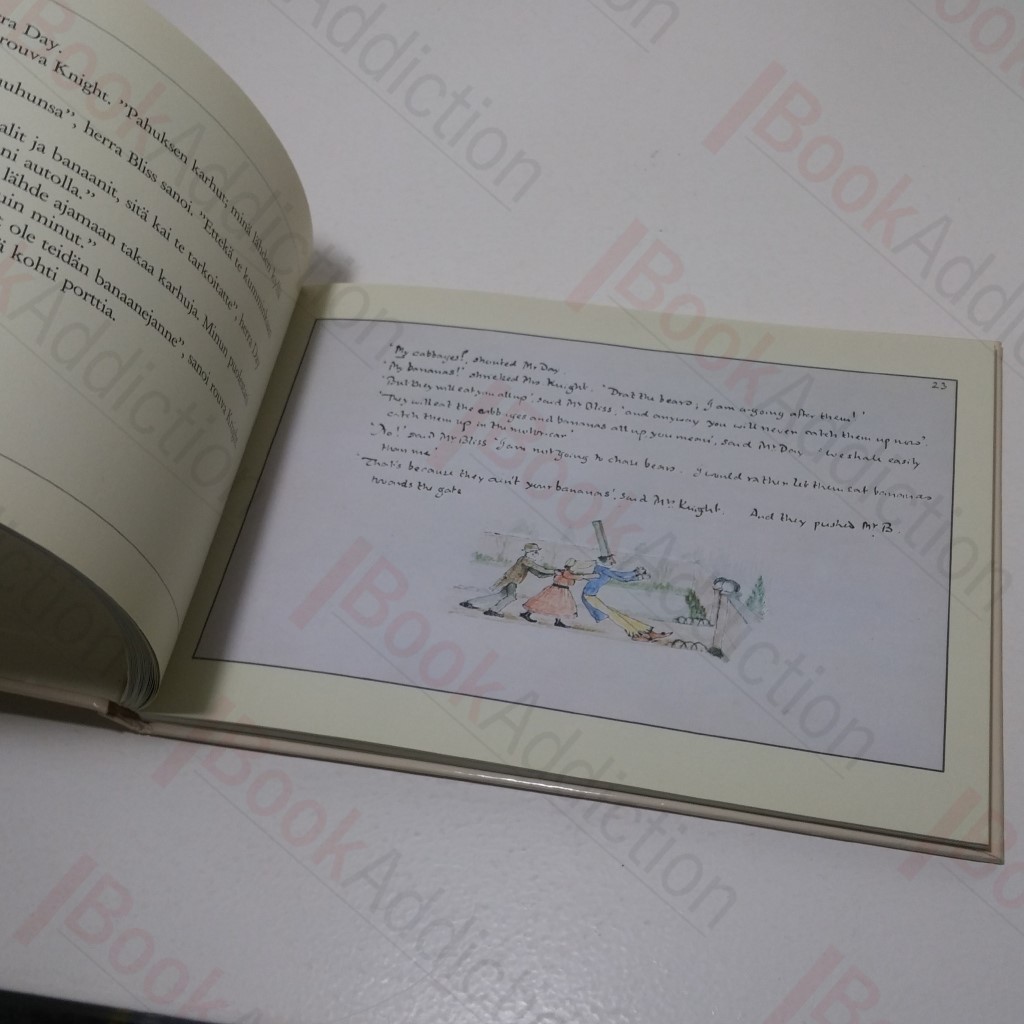 rra Day.
rouva Knight. ”Pahuksen karhut; minä lähden
uuhunsa”, herra Bliss sanoi. ”Ettekä te kummin
alit ja banaanit, sitä kai te tarkoitatte”, herra Day
ni autolla.”
lähde ajamaan takaa karhuja. Minun puolestani
uin minut.”
ole teidän banaanejanne”, sanoi rouva Knight.
ä kohti porttia.
23
'My cabbages!', shouted Mr Day.
'My bananas!' shrieked Mrs. Knight. 'Drat the bears; I am a-going after them!'
'But they will eat you all up', said Mr Bliss, 'and anyway you will never catch them up now'.
'They will eat the cabbages and bananas all up you mean', said Mr Day. 'we shall easily
catch them up in the motor-car'
'No!' said Mr Bliss 'I am not going to chase bears. I would rather let them eat bananas
than me'.
'That's because they ain't your bananas', said Mrs. Knight. And they pushed Mr. B.
towards the gate
BookAddiction
BookAddiction
BookAddiction
BookAddiction
BookAddiction
BookAddiction
BookAddiction
BookAddiction